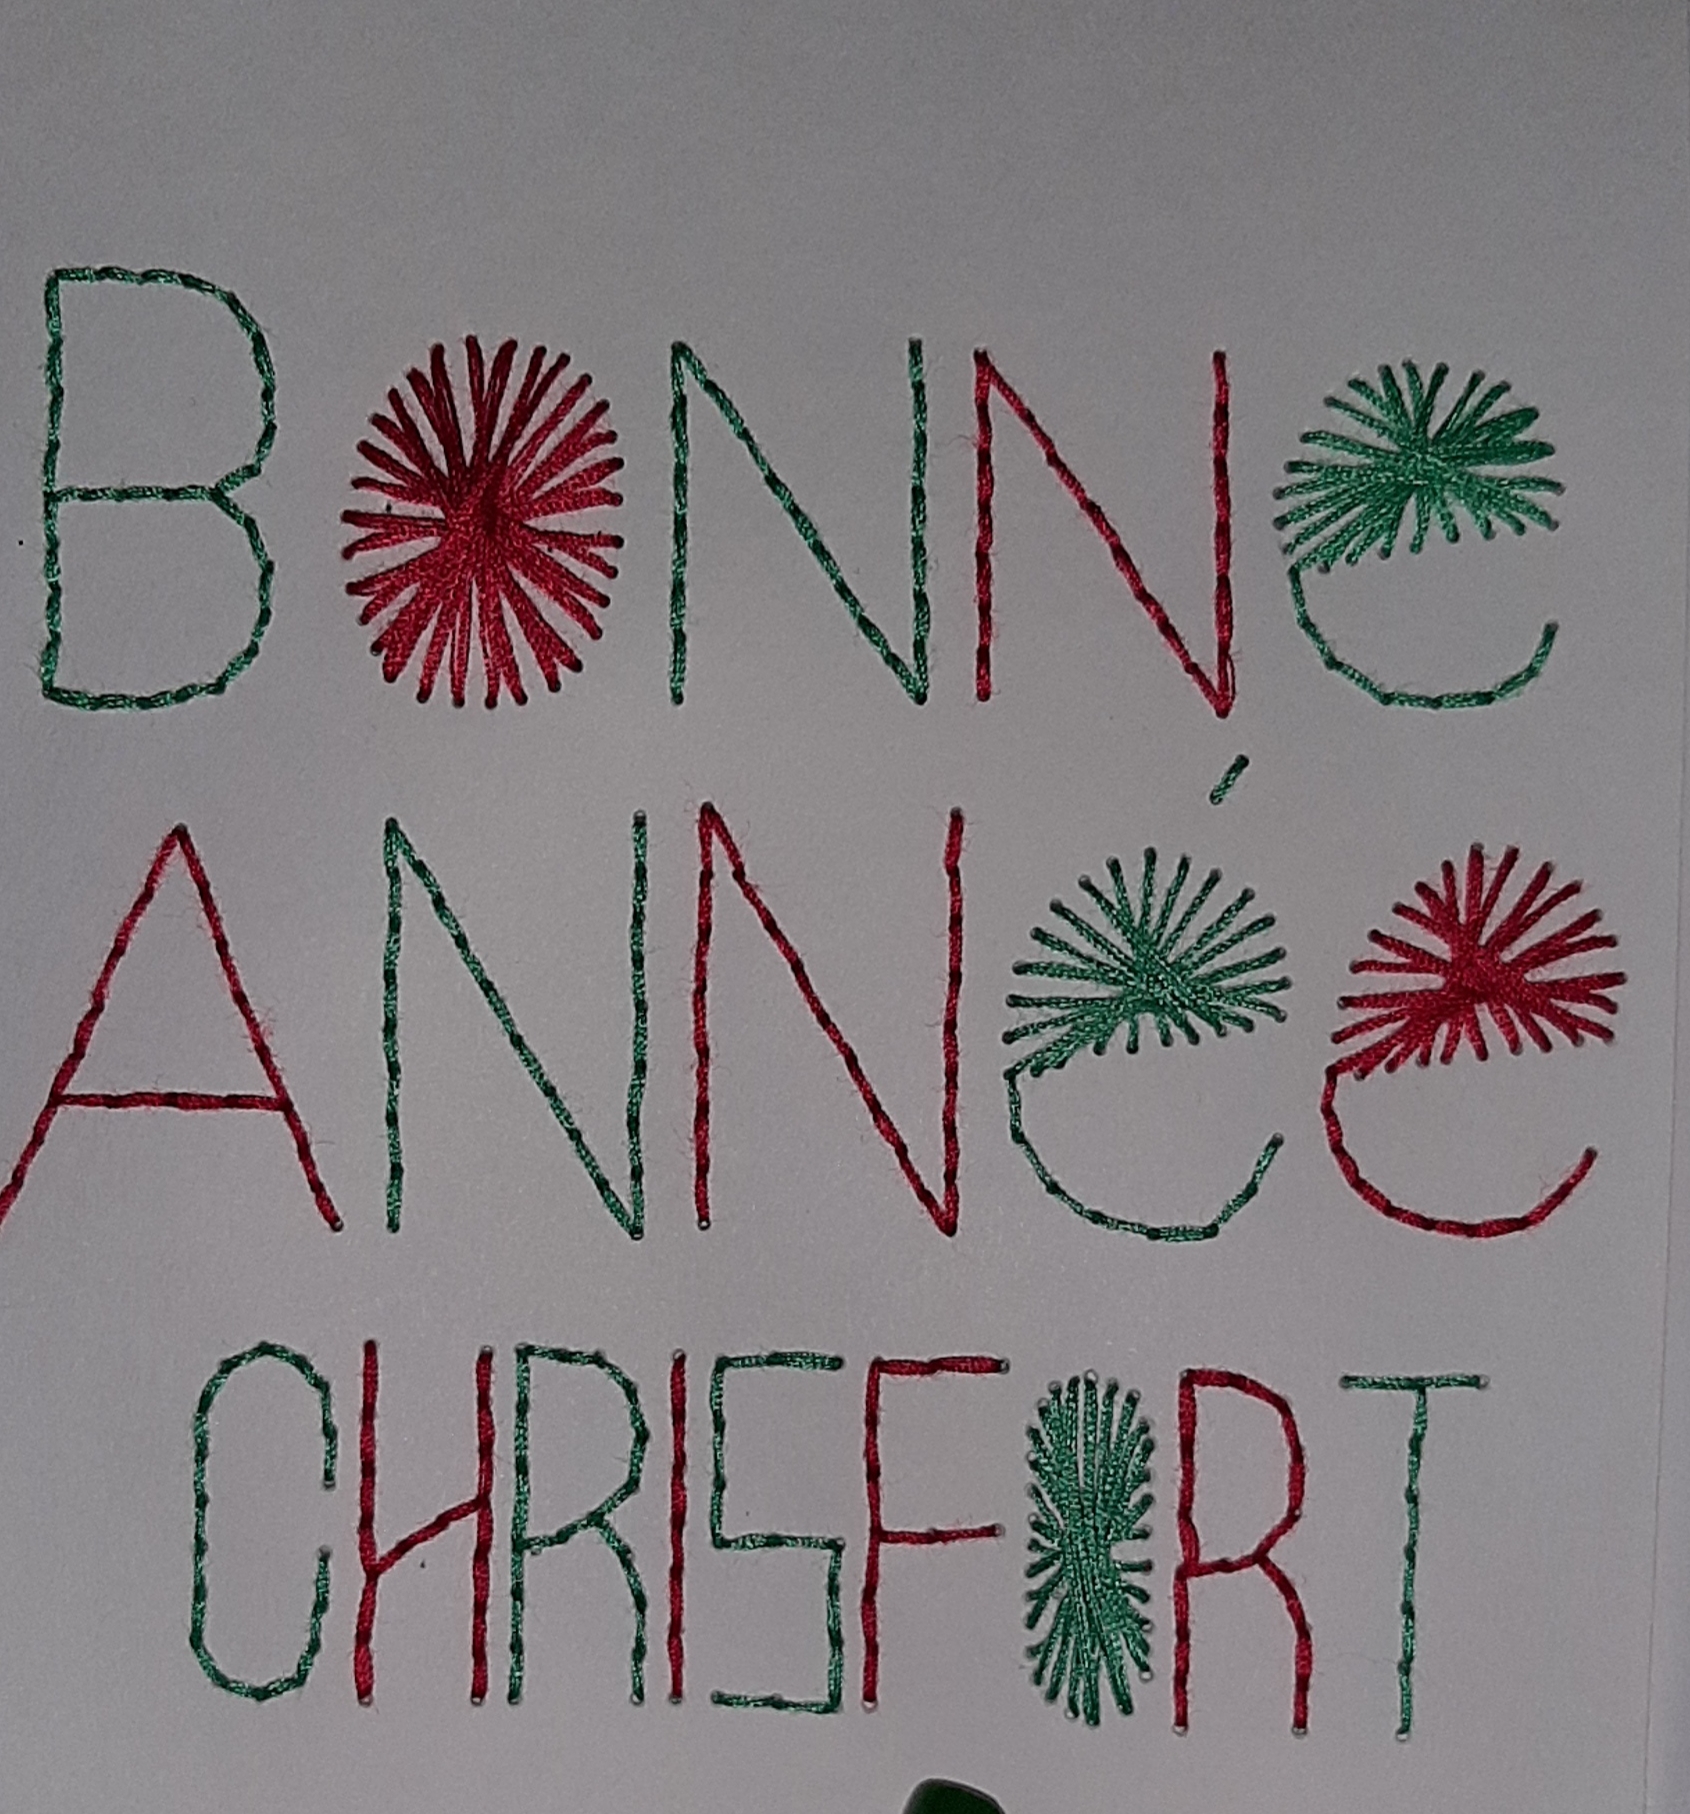 BONNe
ANNée
CHRISFORT